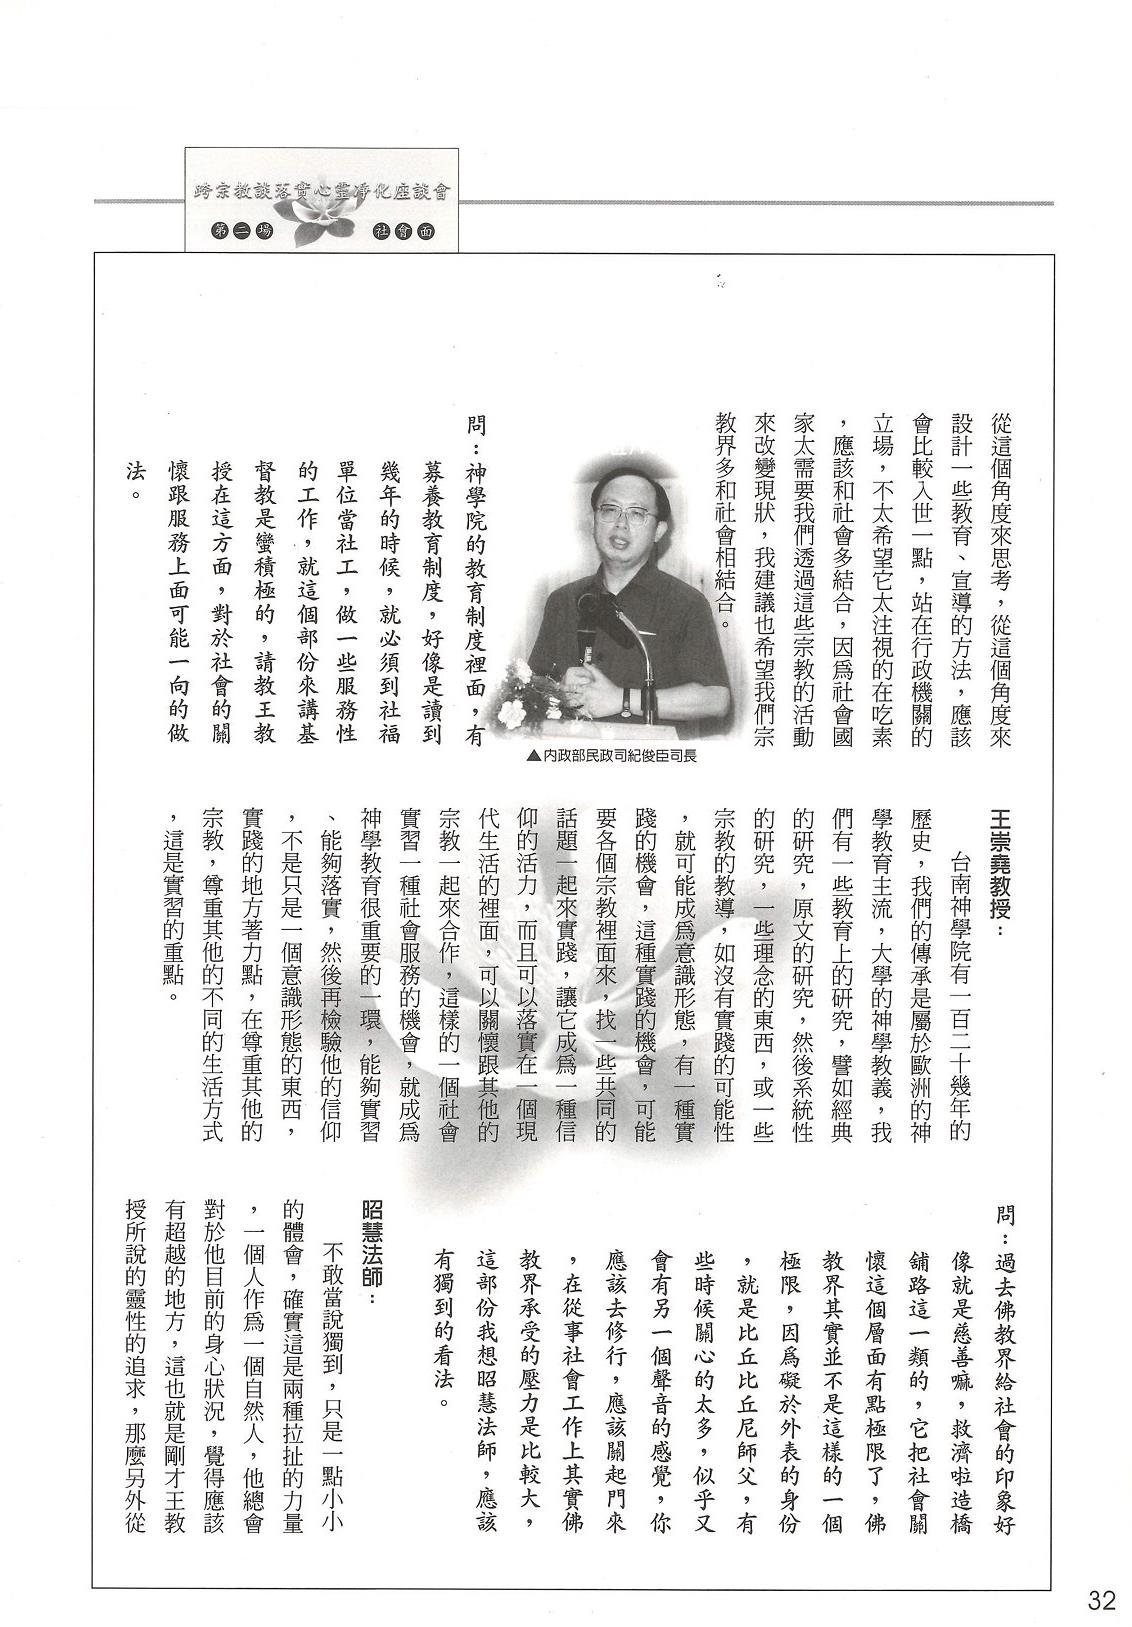 跨宗教談落實心靈淨化座談會
第二場 社會面
從這個角度來思考，從這個角度來
設計一些教育、宣導的方法，應該
會比較入世一點，站在行政機關的
立場，不太希望它太注視的在吃素
，應該和社會多結合，因爲社會國
家太需要我們透過這些宗教的活動
來改變現狀，我建議也希望我們宗
教界多和社會相結合。
▲內政部民政司紀俊臣司長
問：神學院的教育制度裡面，有
募養教育制度，好像是讀到
幾年的時候，就必須到社福
單位當社工，做一些服務性
的工作，就這個部份來講基
督教是蠻積極的，請教王教
授在這方面，對於社會的關
懷跟服務上面可能一向的做
法。
王崇堯教授：
台南神學院有一百二十幾年的
歷史，我們的傳承是屬於歐洲的神
學教育主流，大學的神學教義，我
們有一些教育上的研究，譬如經典
的研究，原文的研究，然後系統性
的研究，一些理念的東西，或一些
宗教的教導，如沒有實踐的可能性
，就可能成爲意識形態，有一種實
踐的機會，這種實踐的機會，可能
要各個宗教裡面來，找一些共同的
話題一起來實踐，讓它成爲一種信
仰的活力，而且可以落實在一個現
代生活的裡面，可以關懷跟其他的
宗教一起來合作，這樣的一個社會
實習一種社會服務的機會，就成爲
神學教育很重要的一環，能夠實習
、能夠落實，然後再檢驗他的信仰
，不是只是一個意識形態的東西，
實踐的地方著力點，在尊重其他的
宗教，尊重其他的不同的生活方式
，這是實習的重點。
問：過去佛教界給社會的印象好
像就是慈善嘛，救濟啦造橋
舖路這一類的，它把社會關
懷這個層面有點極限了，佛
教界其實並不是這樣的一個
極限，因爲礙於外表的身份
，就是比丘比丘尼師父，有
些時候關心的太多，似乎又
會有另一個聲音的感覺，你
應該去修行，應該關起門來
，在從事社會工作上其實佛
教界承受的壓力是比較大，
這部份我想昭慧法師，應該
有獨到的看法。
昭慧法師：
不敢當說獨到，只是一點小小
的體會，確實這是兩種拉扯的力量
，一個人作爲一個自然人，他總會
對於他目前的身心狀況，覺得應該
有超越的地方，這也就是剛才王教
授所說的靈性的追求，那麼另外從
32